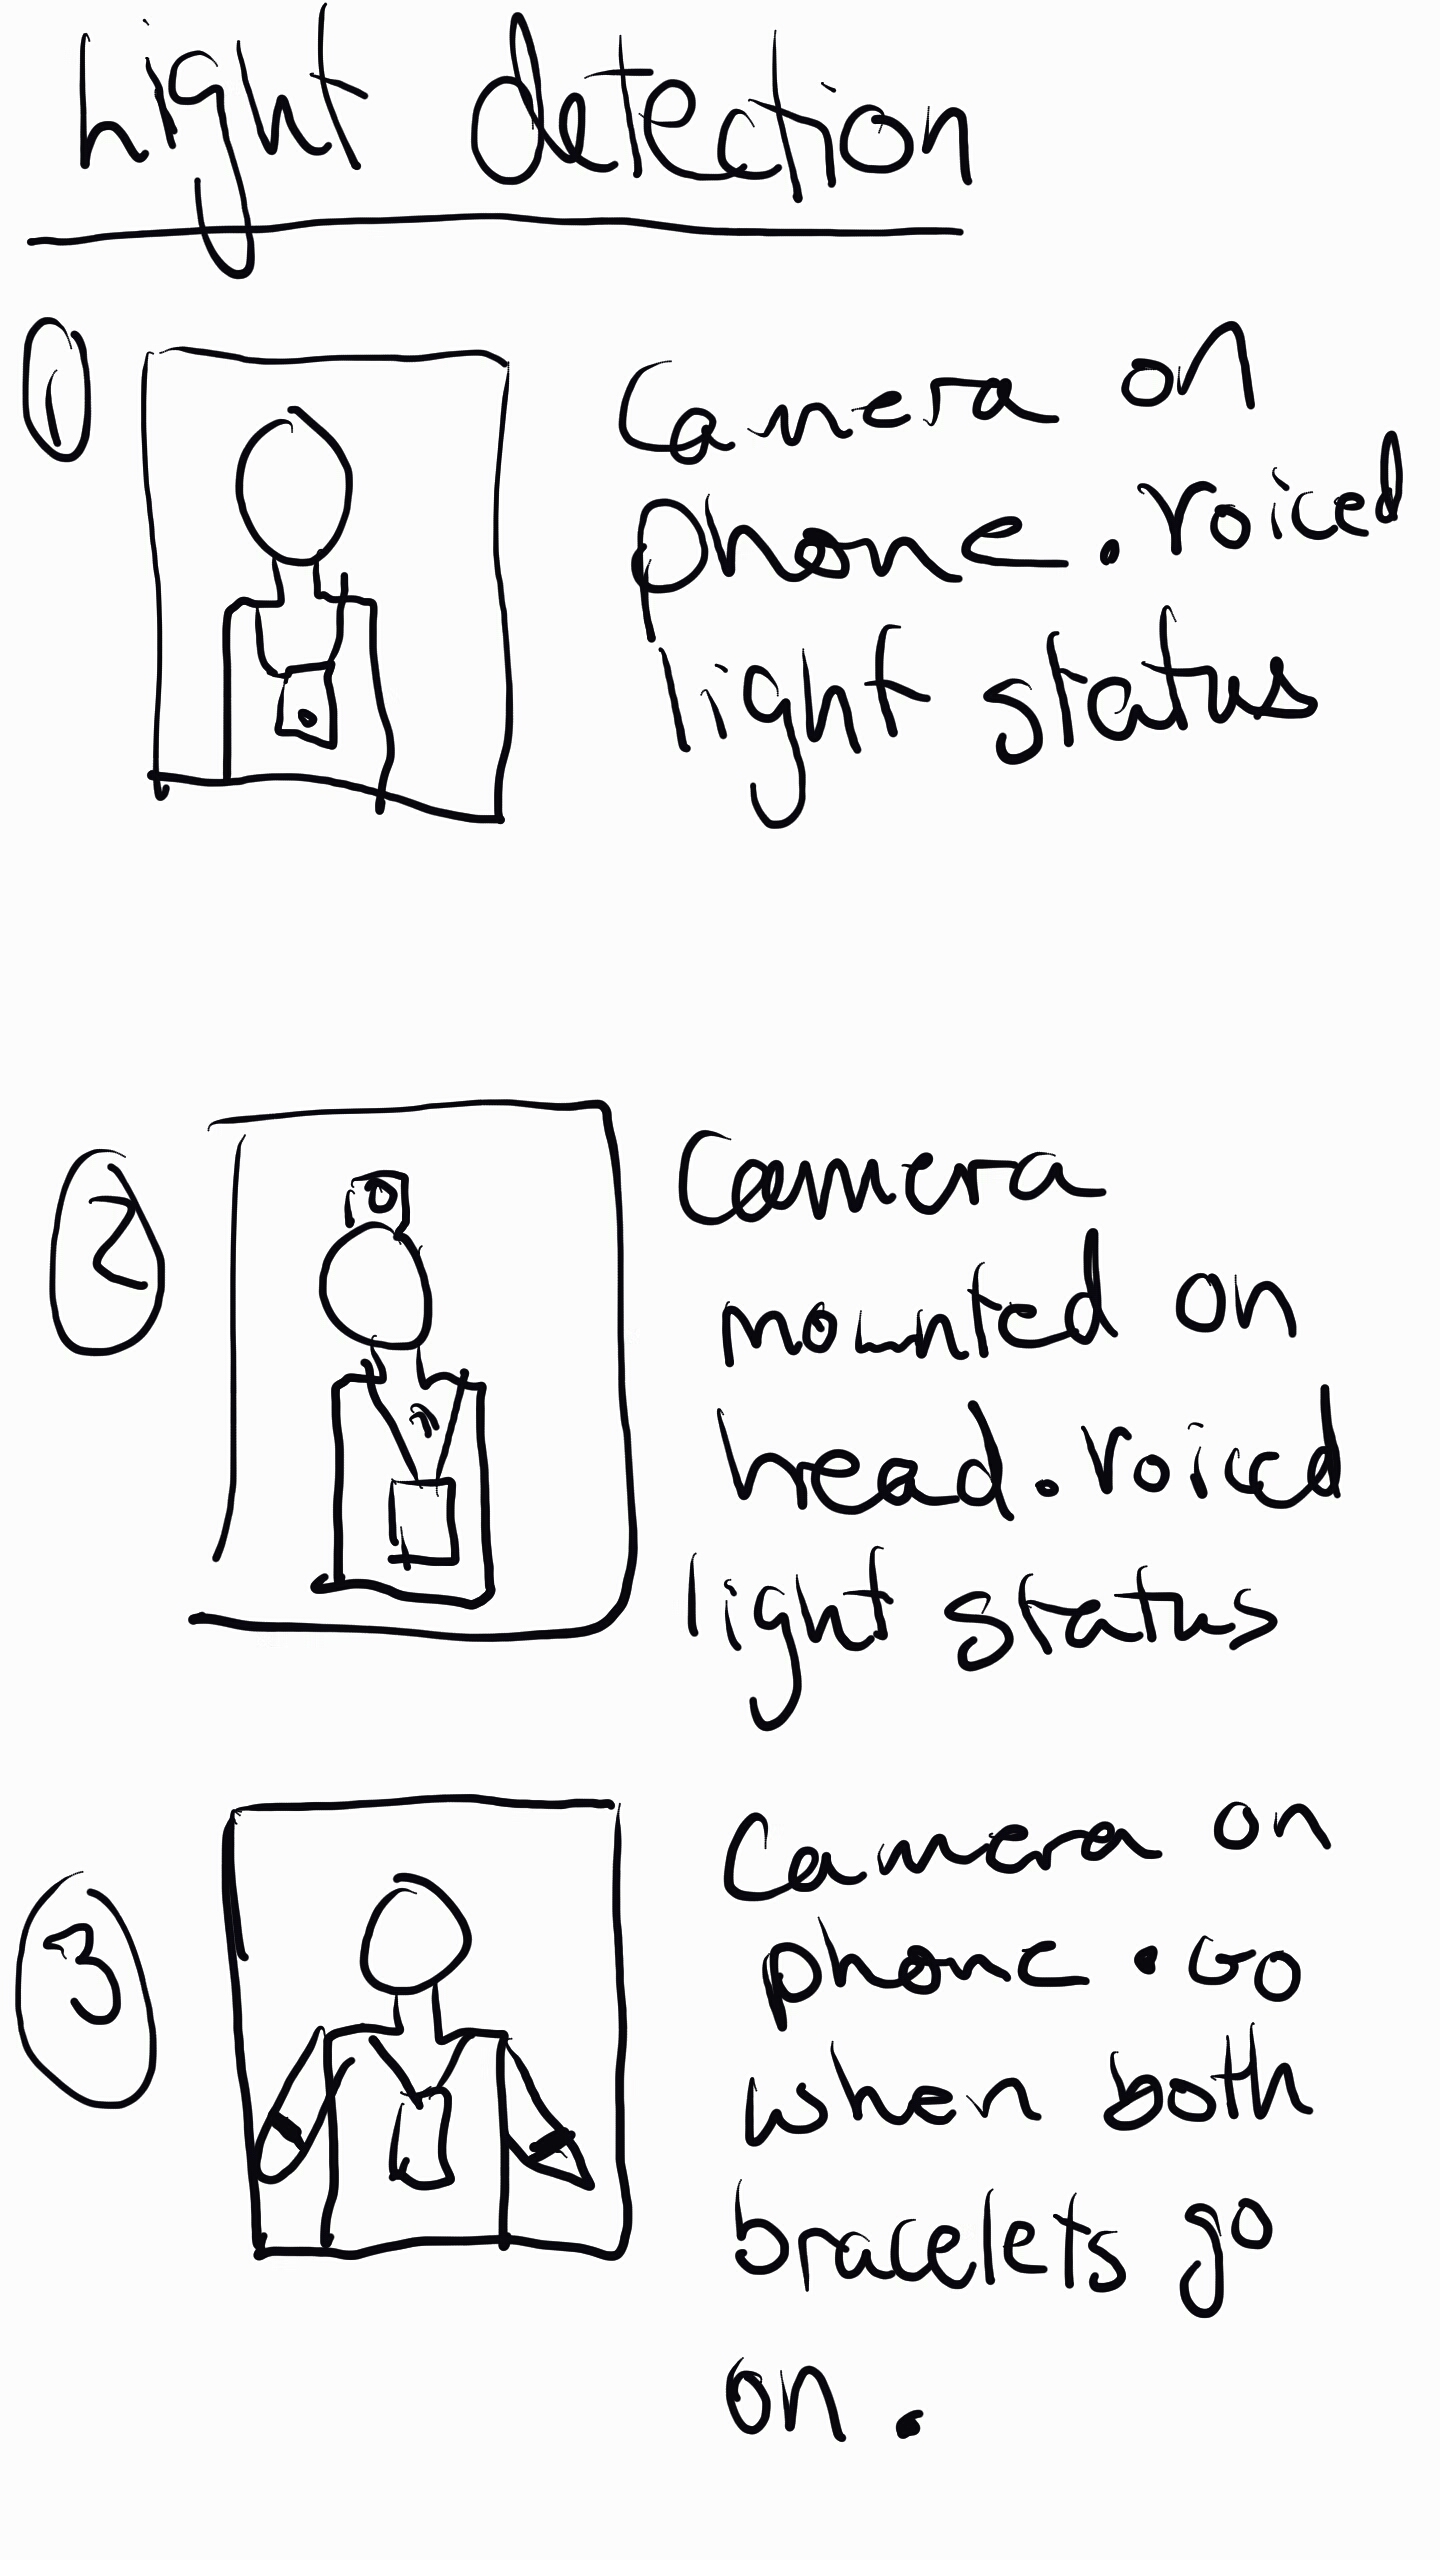 Light detection
1
Camera on
phone. voiced
light status
2
Camera
mounted on
head. voiced
light status
3
Camera on
phone. Go
when both
bracelets go
on.